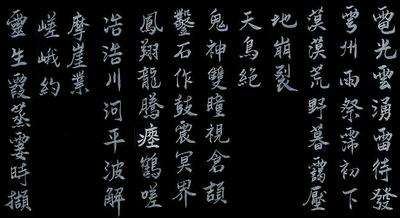 電光雲湧雷待發
雩州雨祭霈初下
莫漠荒野暮靄壓
地崩裂
天鳥絕
鬼神雙瞳視倉頡
鑿石作鼓震冥界
鳳翔龍騰瘞鶴嗟
浩浩川河平波解
摩崖業
嵯峨約
靈生霞蒸霎時擷